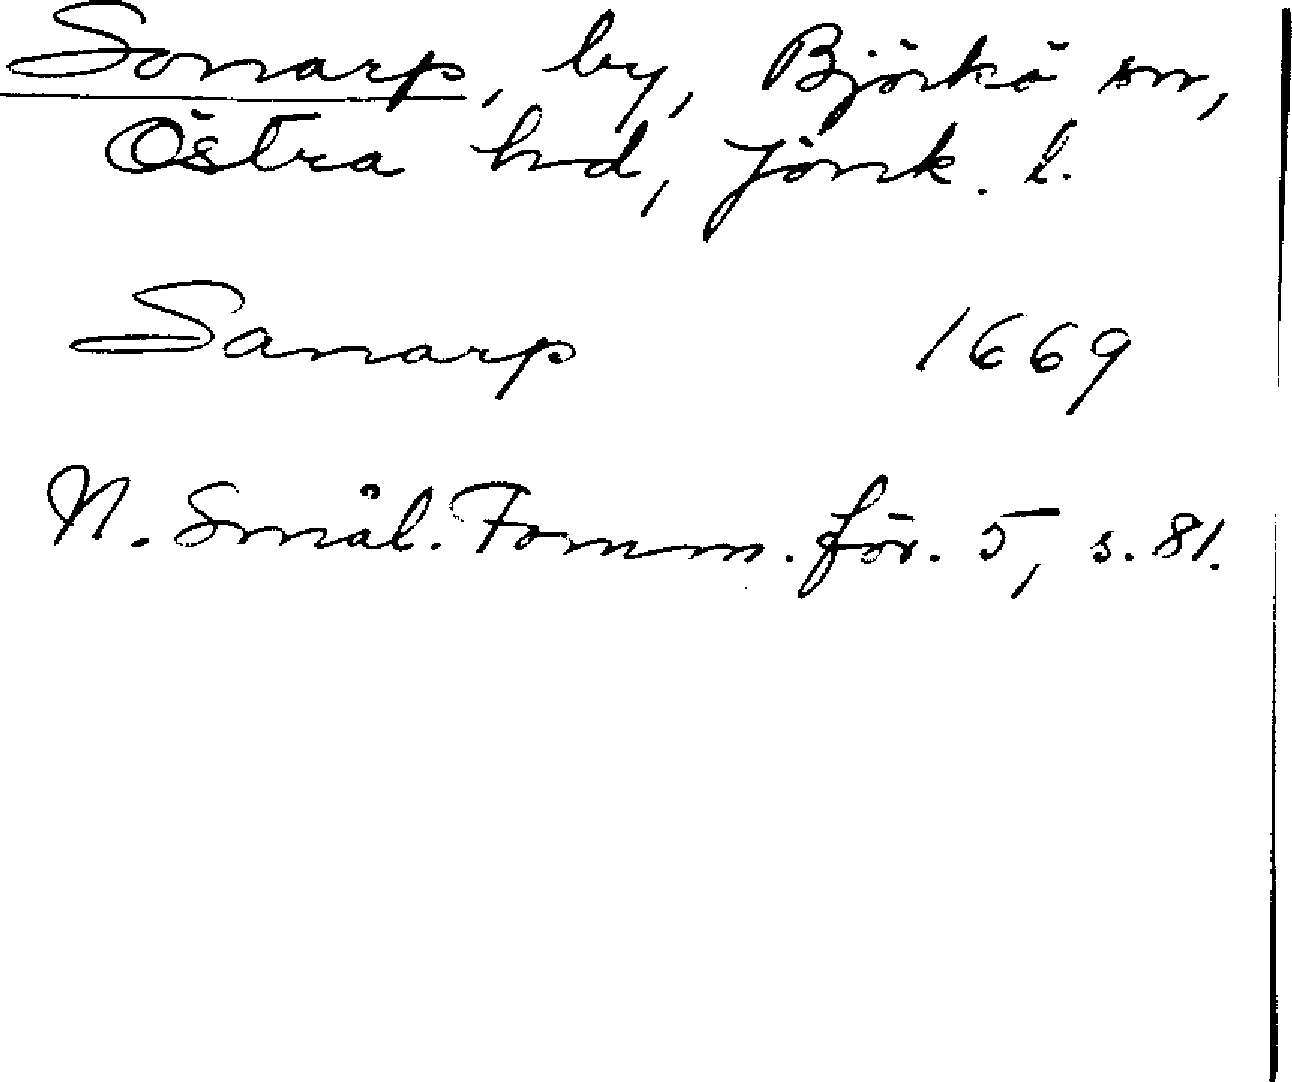 Sonarp, by, Björkö sn,
Östra hd, Jönk. l.
Sanarp 1669
N. Smål. Fornm. för. 5, s. 81.